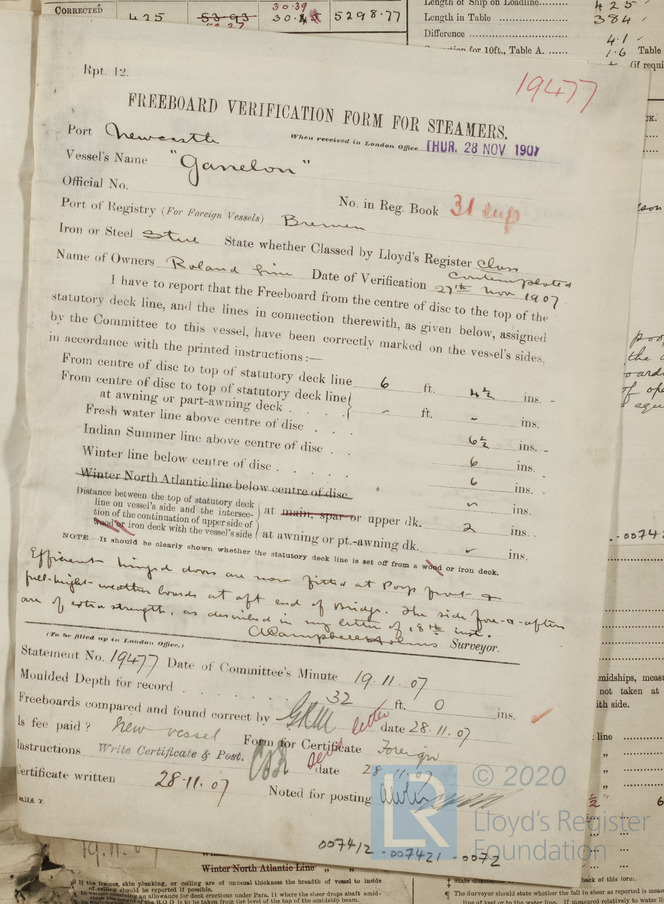 CORRECTED 425 53.93 30.39 5298.77
Length of Ship on Loadline 425
Length in Table 384
Difference 4.1
for 10ft., Table A. 1.6 Table
(if requi
Rpt. 12.
19477
FREEBOARD VERIFICATION FORM FOR STEAMERS.
Port Newcastle When received in London Office THUR. 28 NOV 1907
Vessel's Name "Ganelon"
Official No. No. in Reg. Book 31 sup
Port of Registry (For Foreign Vessels) Bremen
Iron or Steel Steel State whether Classed by Lloyd's Register Class Contemplated
Name of Owners Roland Line Date of Verification 27th Nov 1907
I have to report that the Freeboard from the centre of disc to the top of the
statutory deck line, and the lines in connection therewith, as given below, assigned
by the Committee to this vessel, have been correctly marked on the vessel's sides,
in accordance with the printed instructions:—
From centre of disc to top of statutory deck line 6 ft. 4½ ins.
From centre of disc to top of statutory deck line
at awning or part-awning deck . . . . - ft. - ins.
Fresh water line above centre of disc . . . 6½ ins.
Indian Summer line above centre of disc . . 6 ins.
Winter line below centre of disc . . . . . 6 ins.
Winter North Atlantic line below centre of disc ins.
Distance between the top of statutory deck
line on vessel's side and the intersec-
tion of the continuation of upper side of
wood or iron deck with the vessel's side
at main, spar or upper dk. 2 ins.
at awning or pt.-awning dk. ins.
NOTE—It should be clearly shown whether the statutory deck line is set off from a wood or iron deck.
Efficient hinged doors are now fitted at Poop front &
full-height weather boards at aft end of Bridge. The side fore-&-afters
are of extra strength, as described in my letter of 18th inst.
A Campbell Holms Surveyor.
(To be filled up in London Office.)
Statement No. 19477 Date of Committee's Minute 19.11.07
Moulded Depth for record 32 ft. 0 ins.
Freeboards compared and found correct by GRM date 28.11.07
Is fee paid? New vessel Form for Certificate Foreign
send letter
Instructions Write Certificate & Post. date 28.11.07
Certificate written 28.11.07 Noted for posting
© 2020
LR
Lloyd's Register
Foundation
007412-007421-0072
Winter North Atlantic Line